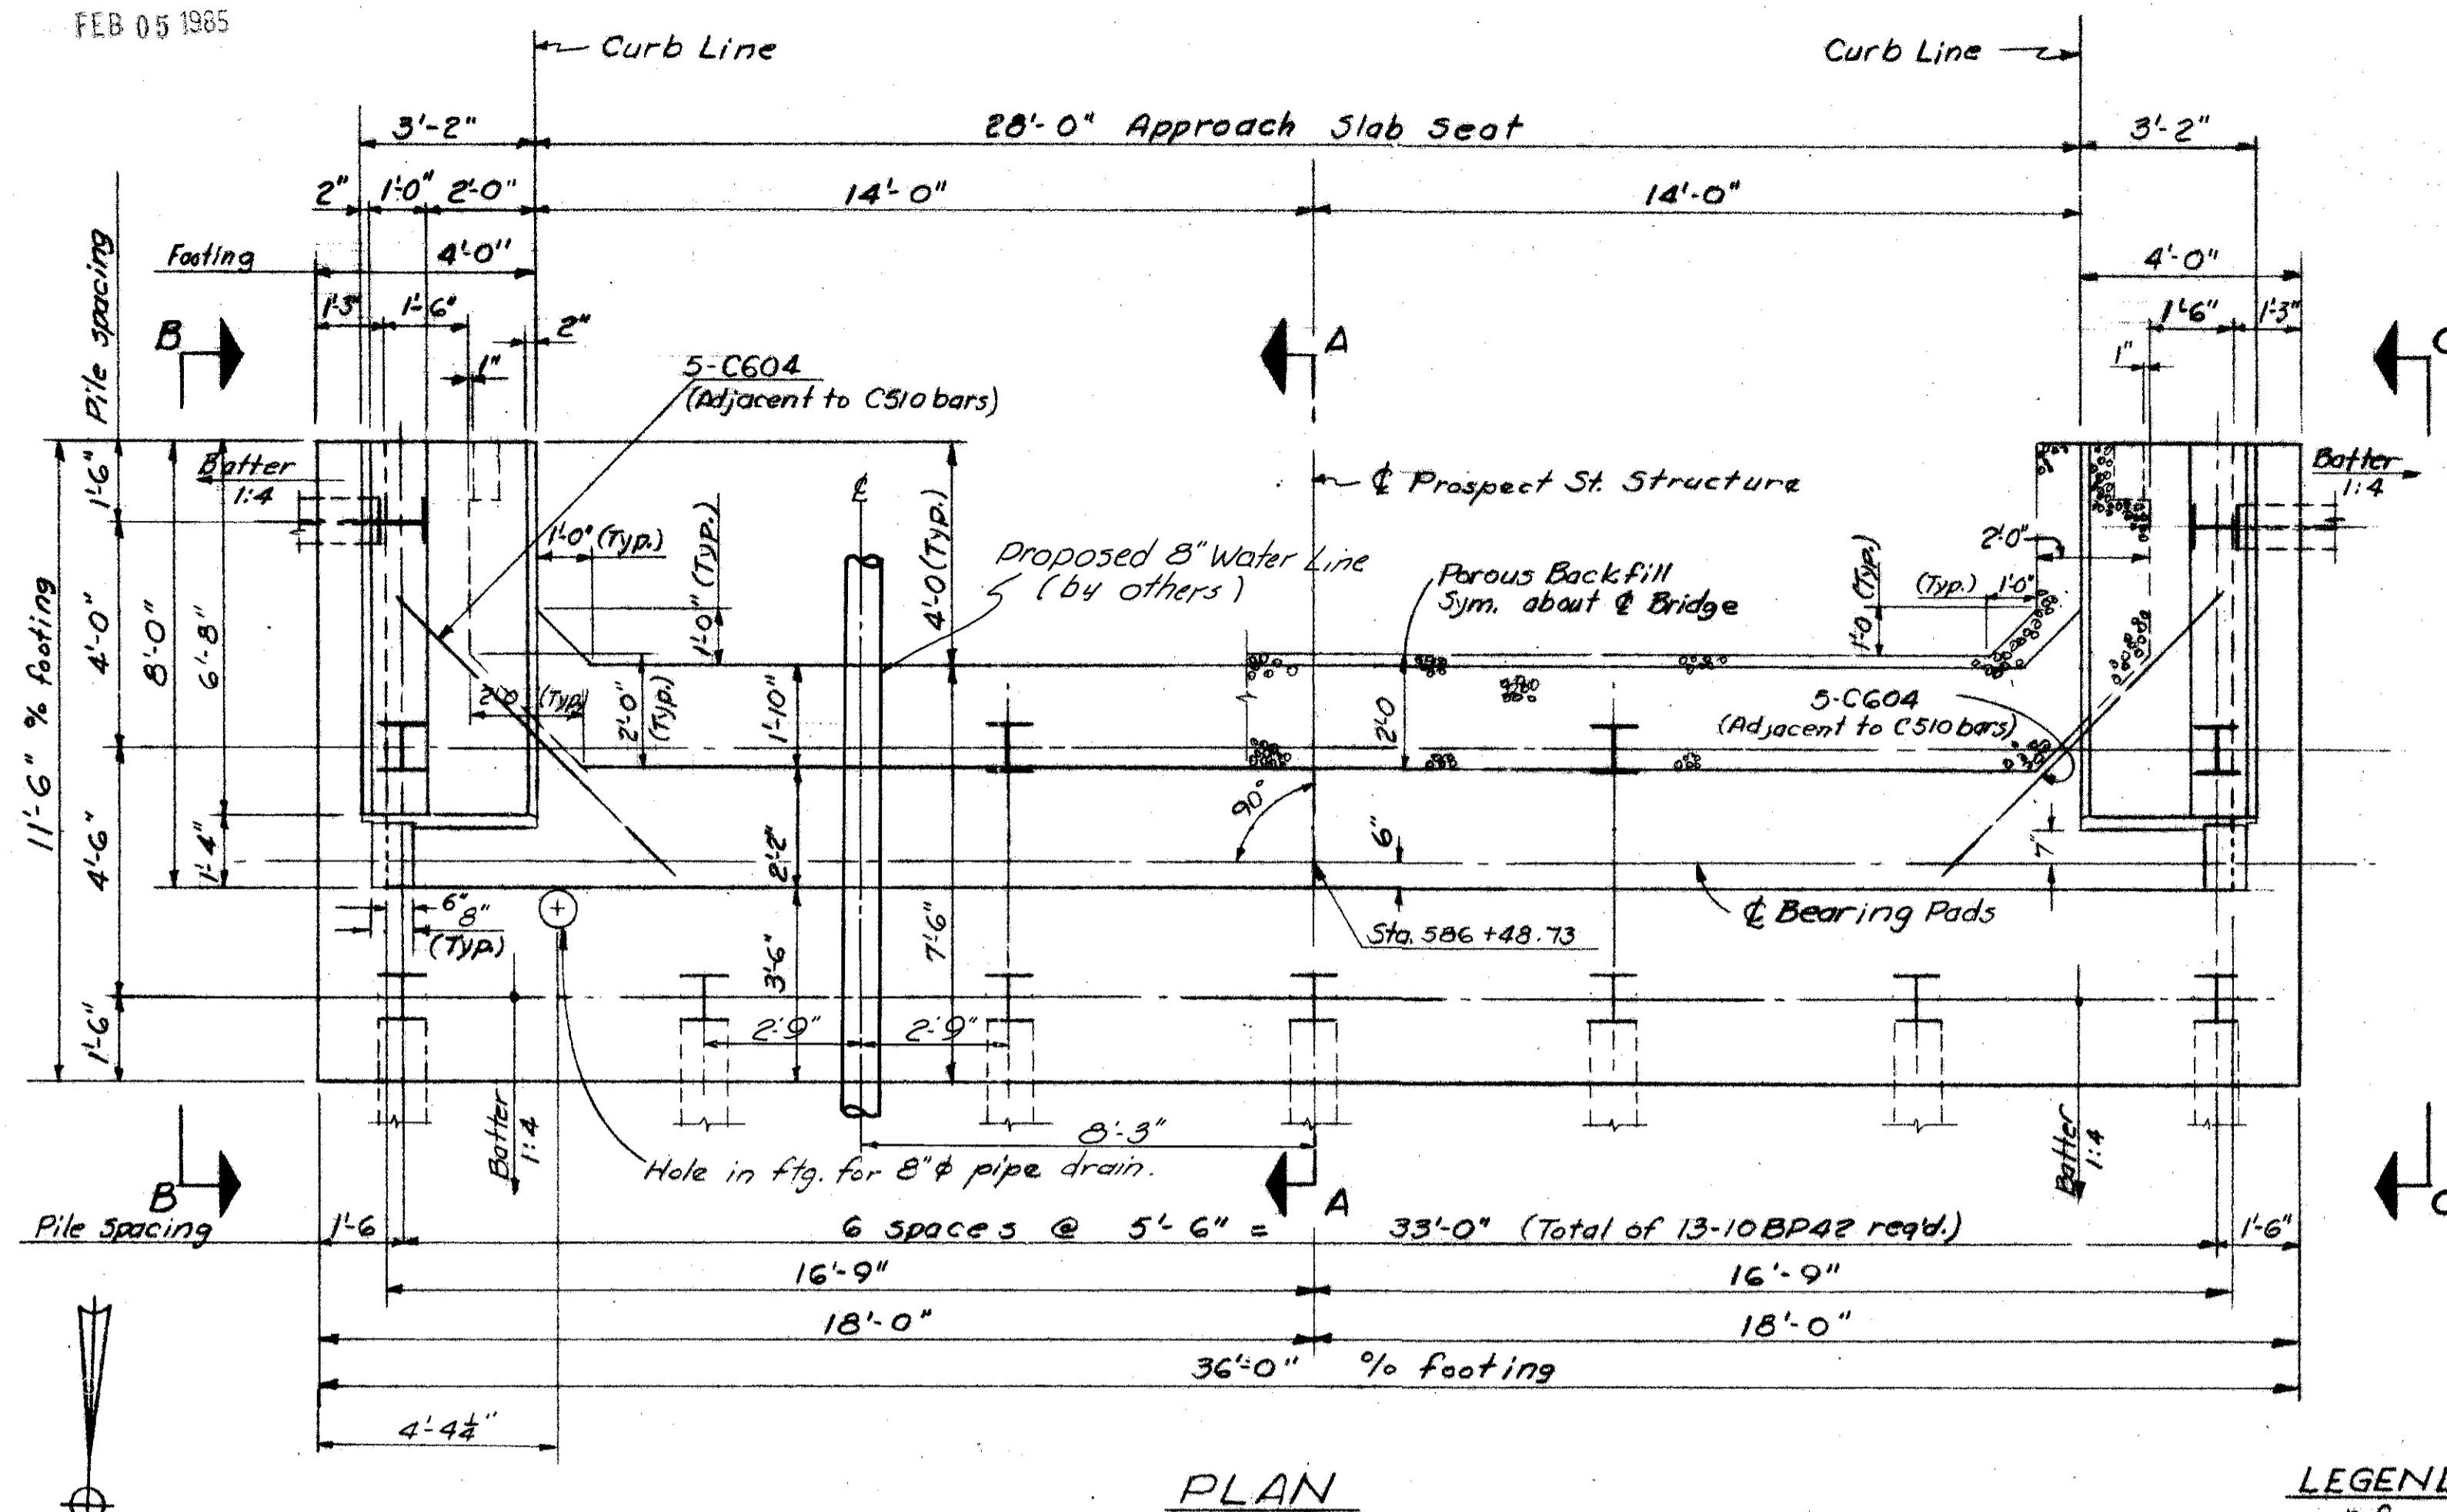 FEB 05 1985
Curb Line
Curb Line
3'-2"
28'-0" Approach Slab Seat
3'-2"
2"
1'-0"
2'-0"
14'-0"
14'-0"
Footing
4'-0"
4'-0"
1'-3"
1'-6"
2"
1'-6"
1'-3"
Pile spacing
B
A
C
1"
1"
5-C604
(Adjacent to C510 bars)
Batter
1:4
℄ Prospect St. Structure
Batter
1:4
1'-6"
℄
1'-0" (Typ.)
1'-0" (Typ.)
4'-0 (Typ.)
Proposed 8" Water Line
(by others)
Porous Backfill
Sym. about ℄ Bridge
2'-0"
(Typ.) 1'-0"
1'-0 (Typ.)
11'-6" % footing
4'-0"
8'-0"
6'-8"
2'-0 (Typ)
2'-0"
(Typ.)
1'-10"
2'-0
5-C604
(Adjacent to C510 bars)
4'-6"
1'-4"
2'-2"
90°
6"
7"
6"
8"
(Typ.)
3'-6"
7'-6"
Sta. 586+48.73
℄ Bearing Pads
1'-6"
2'-9"
2'-9"
Batter
1:4
8'-3"
Batter
1:4
Hole in ftg. for 8"φ pipe drain.
B
A
C
Pile Spacing
1'-6
6 spaces @ 5'-6" = 33'-0" (Total of 13-10BP42 req'd.)
1'-6"
16'-9"
16'-9"
18'-0"
18'-0"
36'-0" % footing
4'-4¼"
PLAN